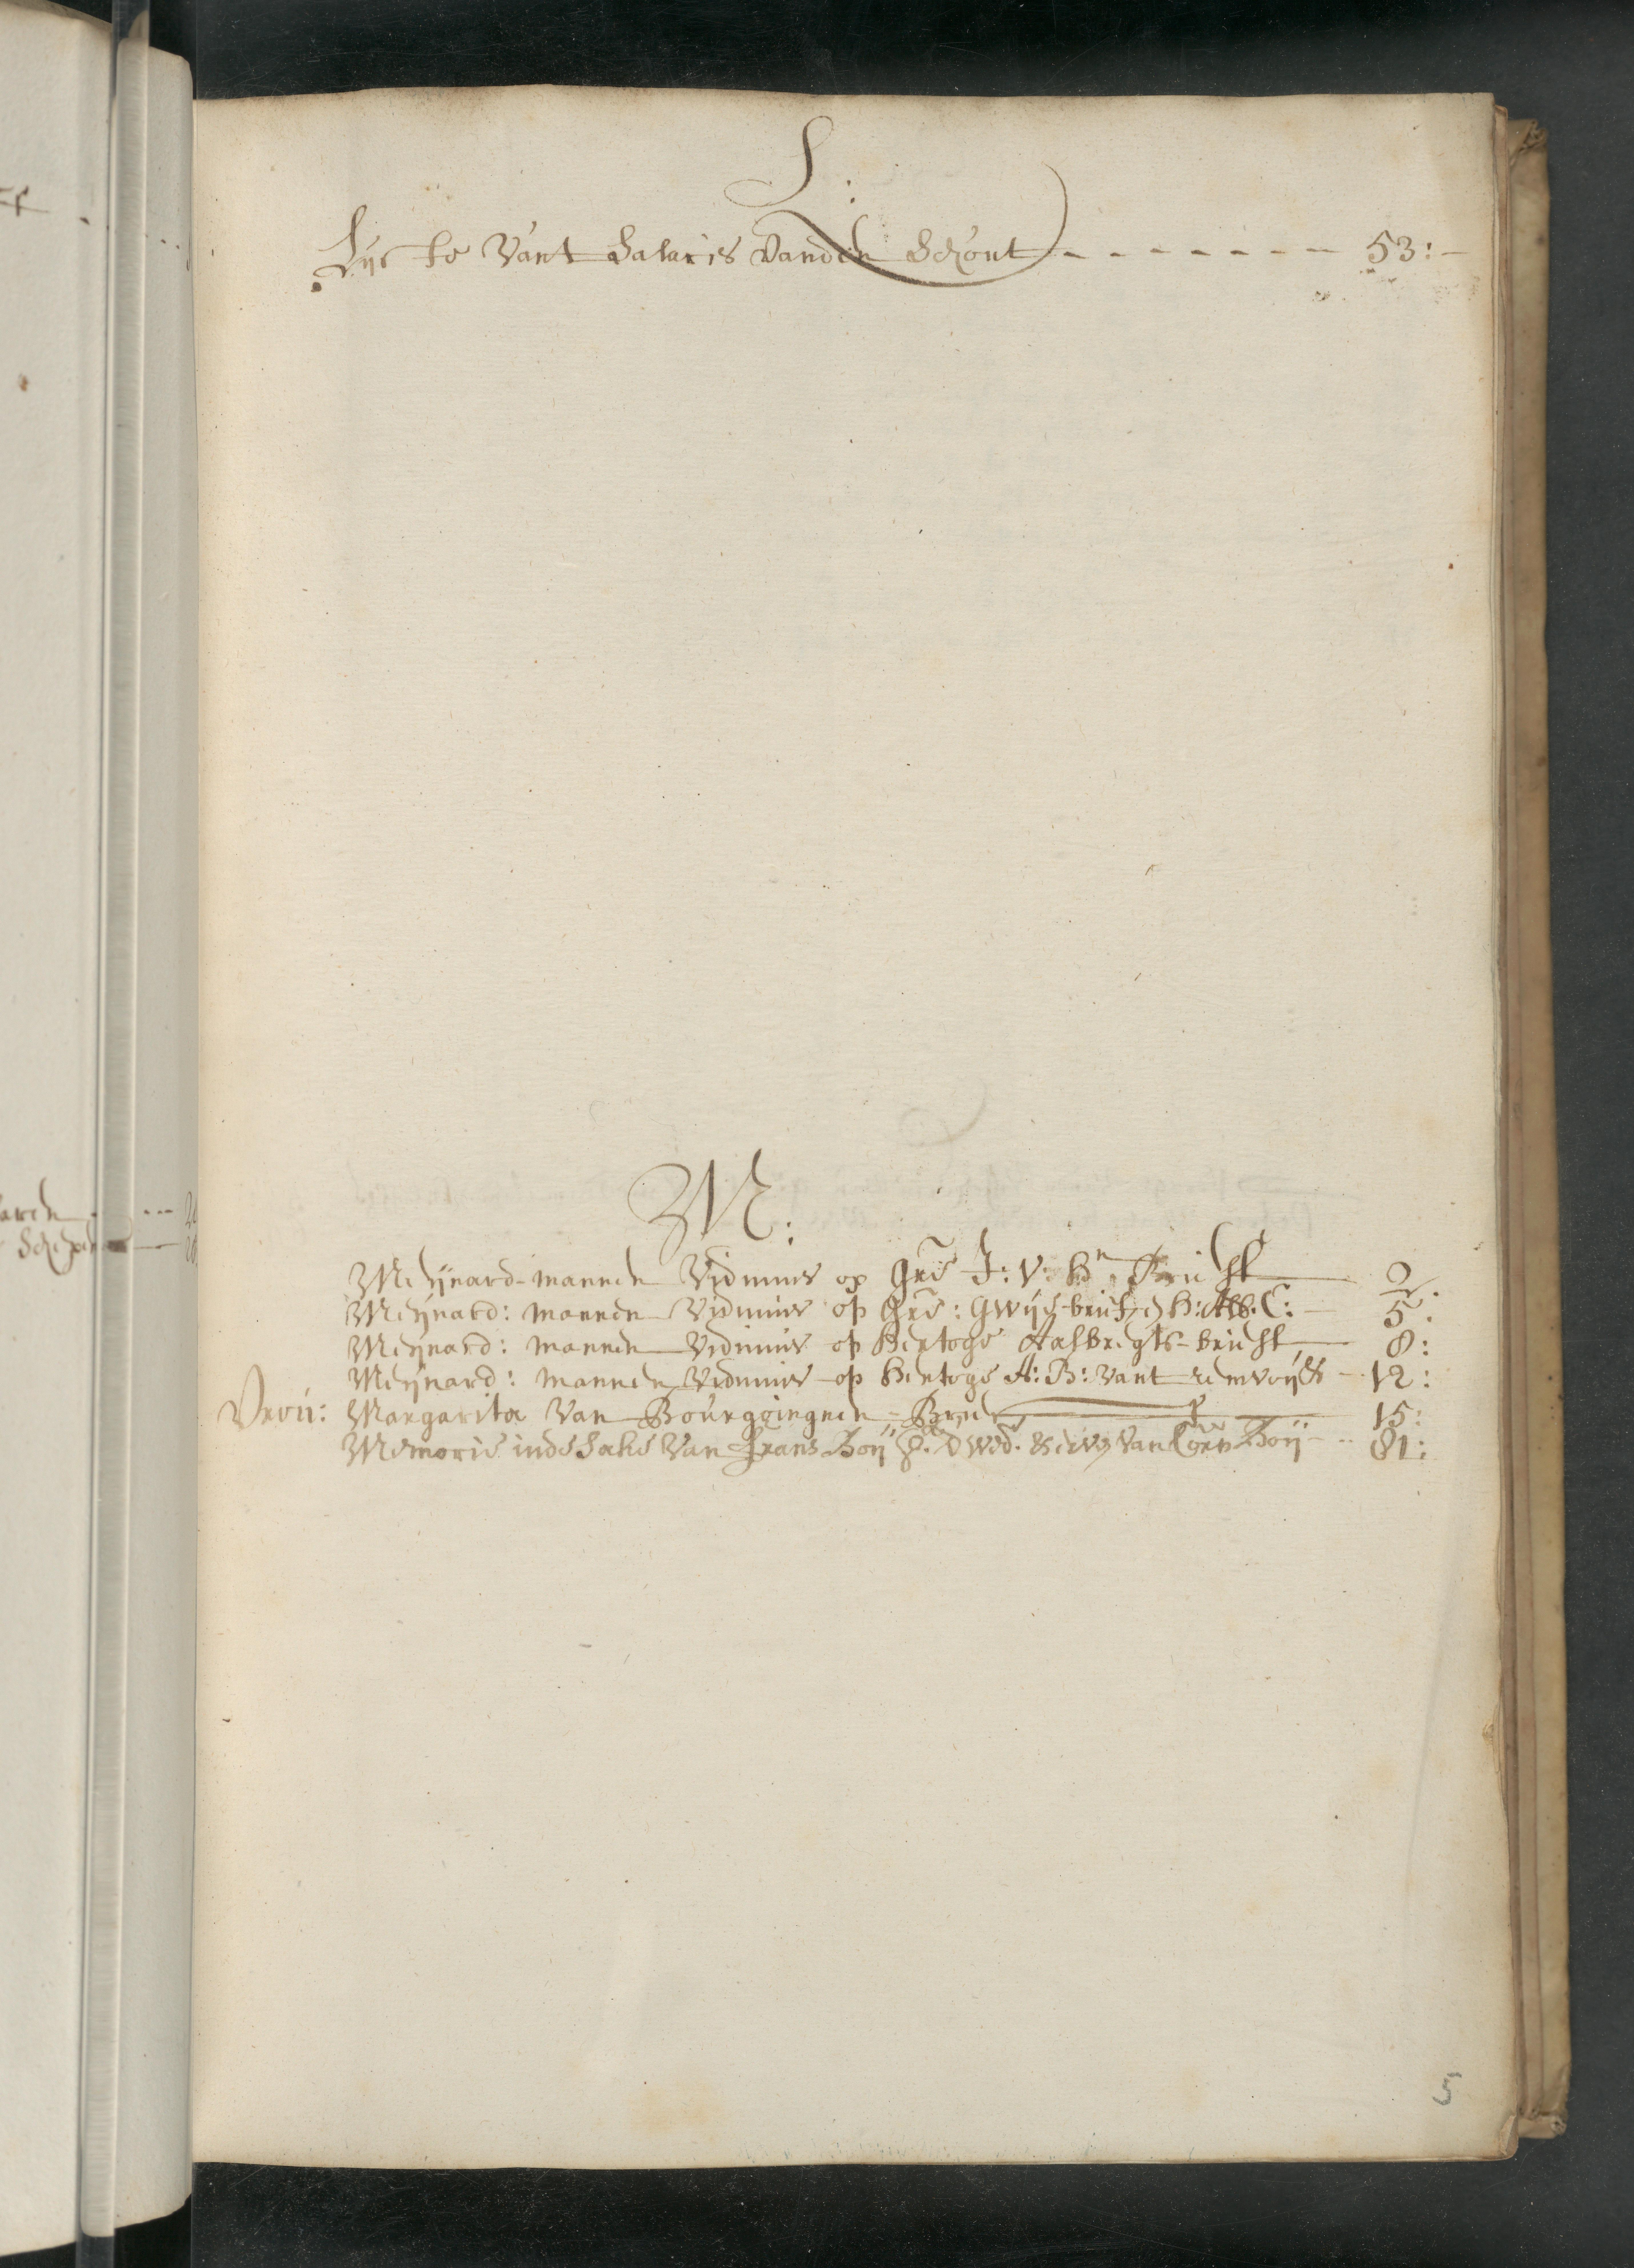 L:
Lijste vant Salaris vanden Schout - - - - - - - 53:-
M:
Meijnard-mannen Vidimus op gre J: V: Hn Brieff 2.
Meijnard: mannen Vidimus op gre: Gwijs-brief H: Alb. C: - 5:
Meijnard: mannen Vidimus op Hertoge Aalbregts-brieff 8:
Meijnard: mannen Vidimus op Hertoge A: B: vant - 12:
Vrou: Margarita van Bourggingnen = Brief 15:
Memorie inde Sake van frans Boij d wed. van Corn Boij - 81:
5